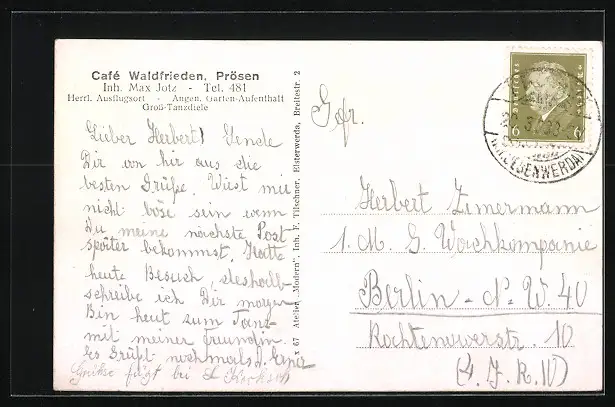 Café Waldfrieden, Prösen
Inh. Max Jotz - Tel. 481
Herrl. Ausflugsort - Angen. Garten-Aufenthalt
Groß-Tanzdiele
Lieber Herbert! Sende
Dir von hir aus die
besten Grüße. Wirst mir
nicht böse sein wenn
Du meine nächste Post
später bekommst. Hatte
heute Besuch, deshalb
schreibe ich Dir morgen
Bin heut zum Tanz
mit meiner Freundin.
Es Grüßt nochmals
Grüße fügt bei
x 67 Atelier „Modern", Inh. F. Tilschner, Elsterwerda, Breitestr. 2
Gefr.
Herbert Zimermann
1. M. G. Wachkompanie
Berlin - N. W. 40
Rathenowerstr. 10
(4. J. R. IV)
DEUTSCHES REICH
6 6